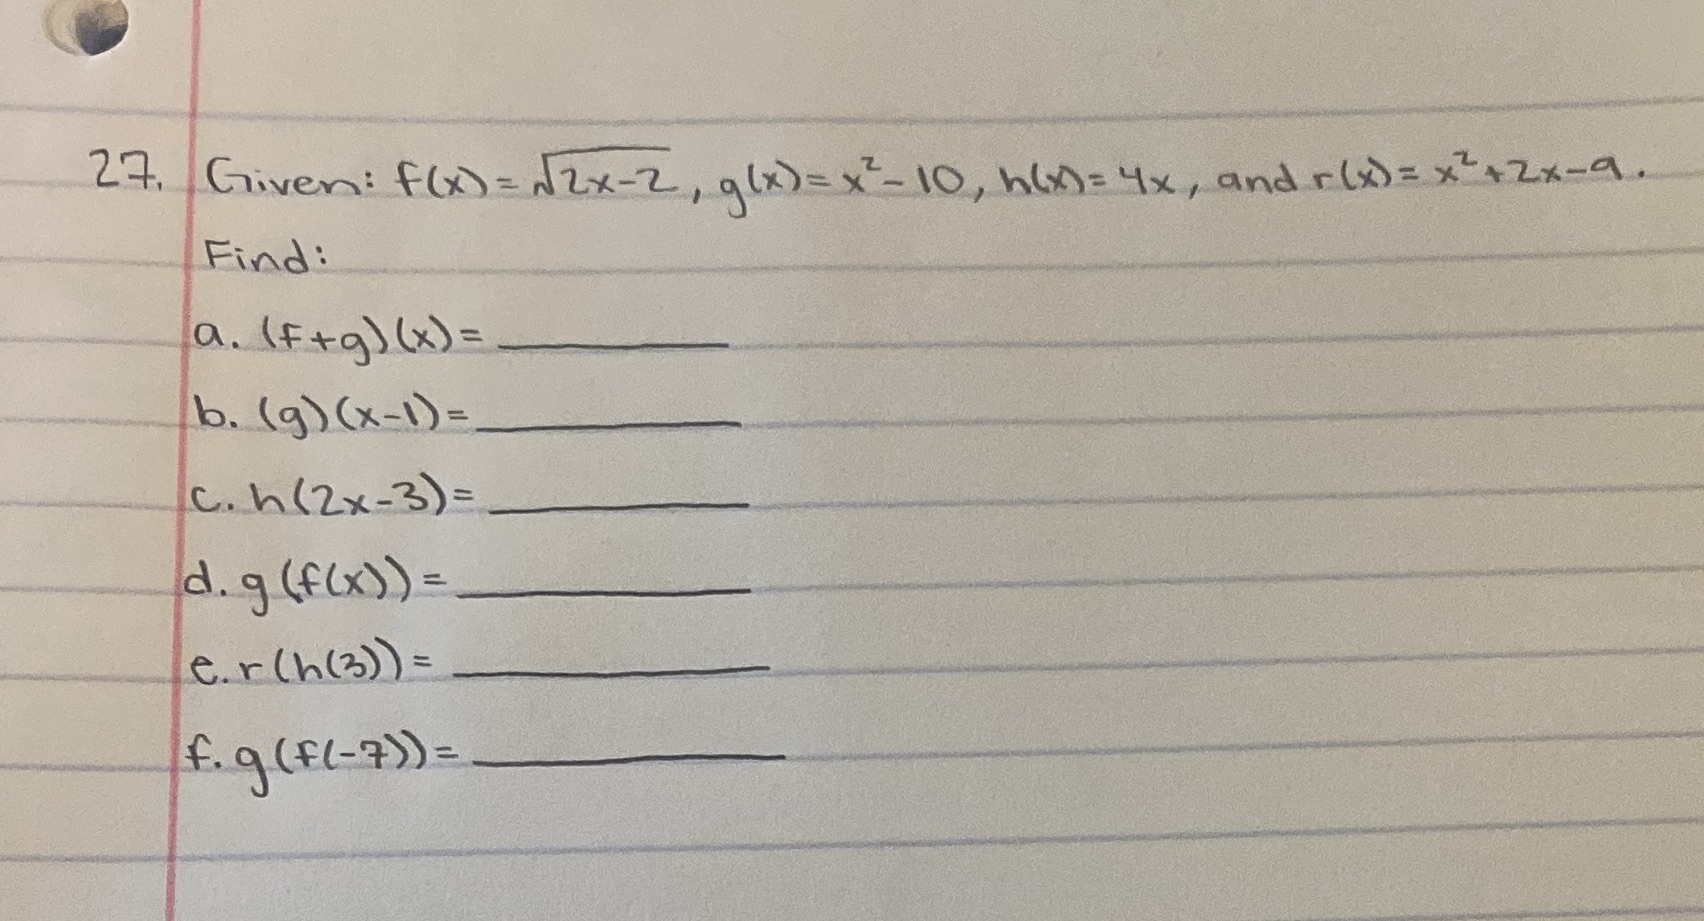 27. Given: f(x) = √2x-2, g(x) = x² - 10, h(x) = 4x, and r(x) = x² + 2x - 9.
Find:
a. (f+g)(x) = ________
b. (g)(x-1) = ________
c. h(2x-3) = ________
d. g(f(x)) = ________
e. r(h(3)) = ________
f. g(f(-7)) = ________